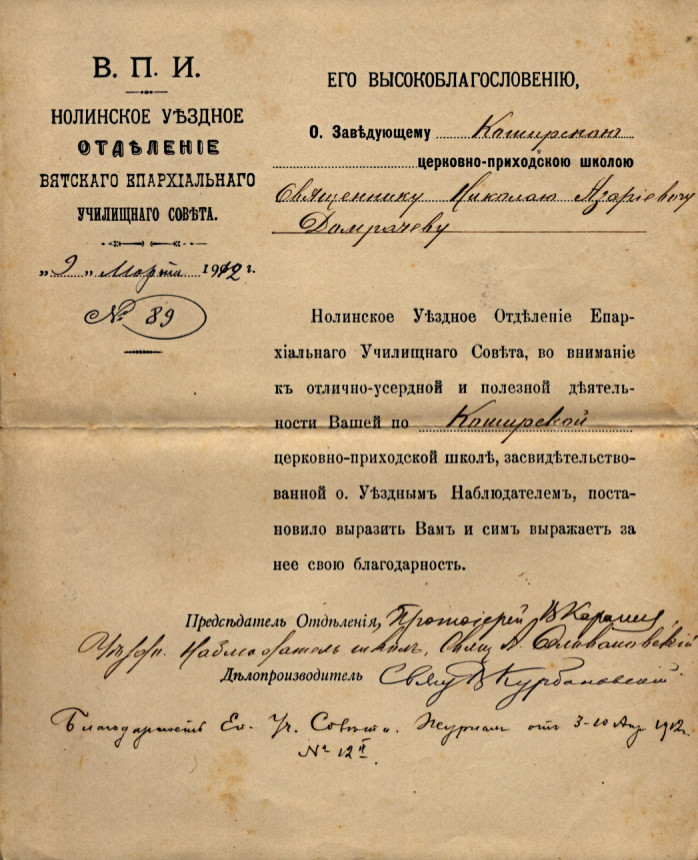 В. П. И.
НОЛИНСКОЕ УѢЗДНОЕ
ОТДѢЛЕНІЕ
ВЯТСКАГО ЕПАРХІАЛЬНАГО
УЧИЛИЩНАГО СОВѢТА.
„9„ Марта 1912 г.
№ 89
ЕГО ВЫСОКОБЛАГОСЛОВЕНІЮ,
О. Завѣдующему Коширскою
церковно-приходскою школою
Священнику Николаю Азаріевичу
Домрачеву
Нолинское Уѣздное Отдѣленіе Епар-
хіальнаго Училищнаго Совѣта, во вниманіе
къ отлично-усердной и полезной дѣятель-
ности Вашей по Коширской
церковно-приходской школѣ, засвидѣтельство-
ванной о. Уѣзднымъ Наблюдателемъ, поста-
новило выразить Вамъ и симъ выражаетъ за
нее свою благодарность.
Предсѣдатель Отдѣленія, Протоіерей В
Наблюдатель школъ, Свящ. А.
Дѣлопроизводитель Свящ В Курбановскій
Благодарность Еп. Уч. Совѣта. Журнал отъ 3-10 Апр 1912г.
№ 12